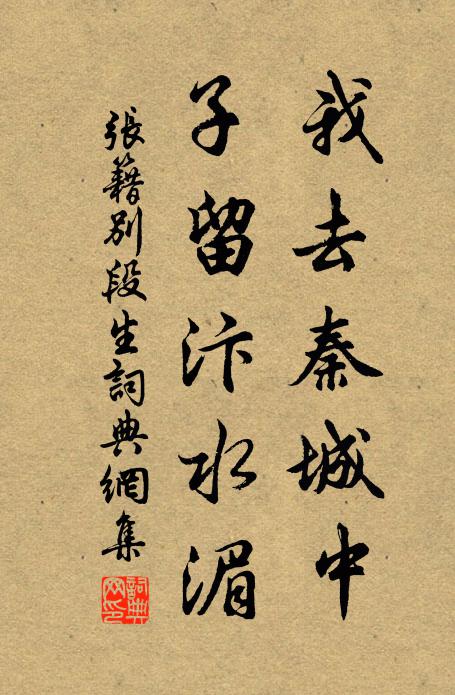 我去秦城中
子留汴水湄
張籍別段生詞典網集
詞典网印